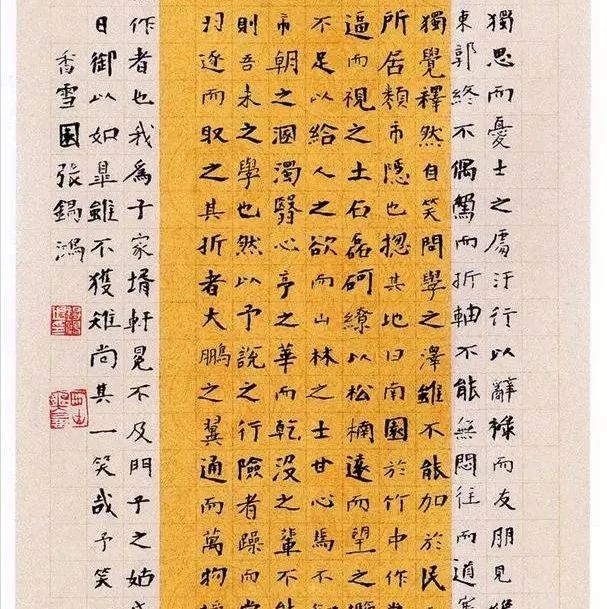 獨思而憂士之處汙行以辭祿而友朋見
東郭終不偶駕而折軸不能無悶往而道
獨覺釋然自笑問學之澤雖不能加於民
所居類市隱也揔其地曰南園於竹中作
逼而視之土石磊砢繚以松楠遠而望之
不足以給人之欲而山林之士甘心焉不
市朝之涸濁翳心亭之華而乾沒之輩不
則吾未之學也然以予說之行險者躁而
逐而取之其折者大鵬之翼通而萬物
作者也我為子家壻軒冕不及門子之姑
日御以如皋雖不獲雉尚其一笑哉予笑
香雪園張錫鴻